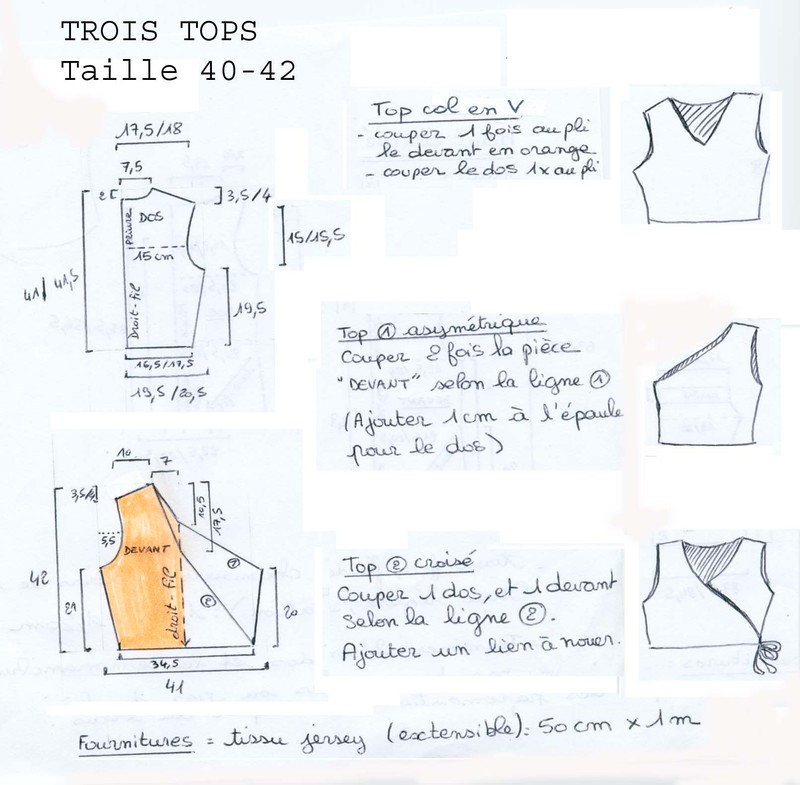 TROIS TOPS
Taille 40-42
17,5/18
7,5
2
3,5/4
DOS
pliure
15 cm
15/15,5
41/ 41,5
Droit-fil
19,5
16,5/17,5
19,5/20,5
Top col en V
- couper 1 fois au pli
le devant en orange
- couper le dos 1x au pli
Top ① asymétrique
Couper 2 fois la pièce
"DEVANT" selon la ligne ①
(Ajouter 1cm à l'épaule
pour le dos)
10
7
3,5/4
10,5
17,5
5,5
DEVANT
①
42
droit-fil
②
21
20
34,5
41
Top ② croisé
Couper 1 dos, et 1 devant
selon la ligne ②.
Ajouter un lien à nouer.
Fournitures = tissu jersey (extensible): 50 cm x 1 m